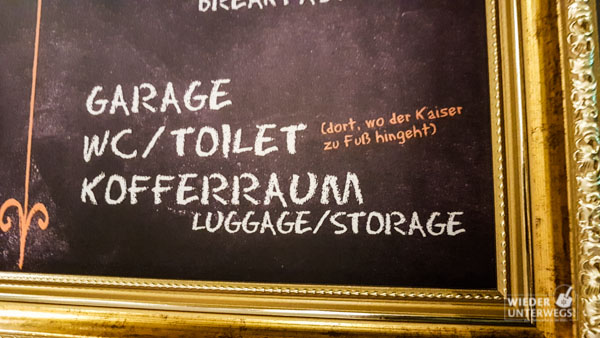 GARAGE
WC/TOILET (dort, wo der Kaiser
zu Fuß hingeht)
KOFFERRAUM
LUGGAGE/STORAGE
WIEDER
UNTERWEGS!